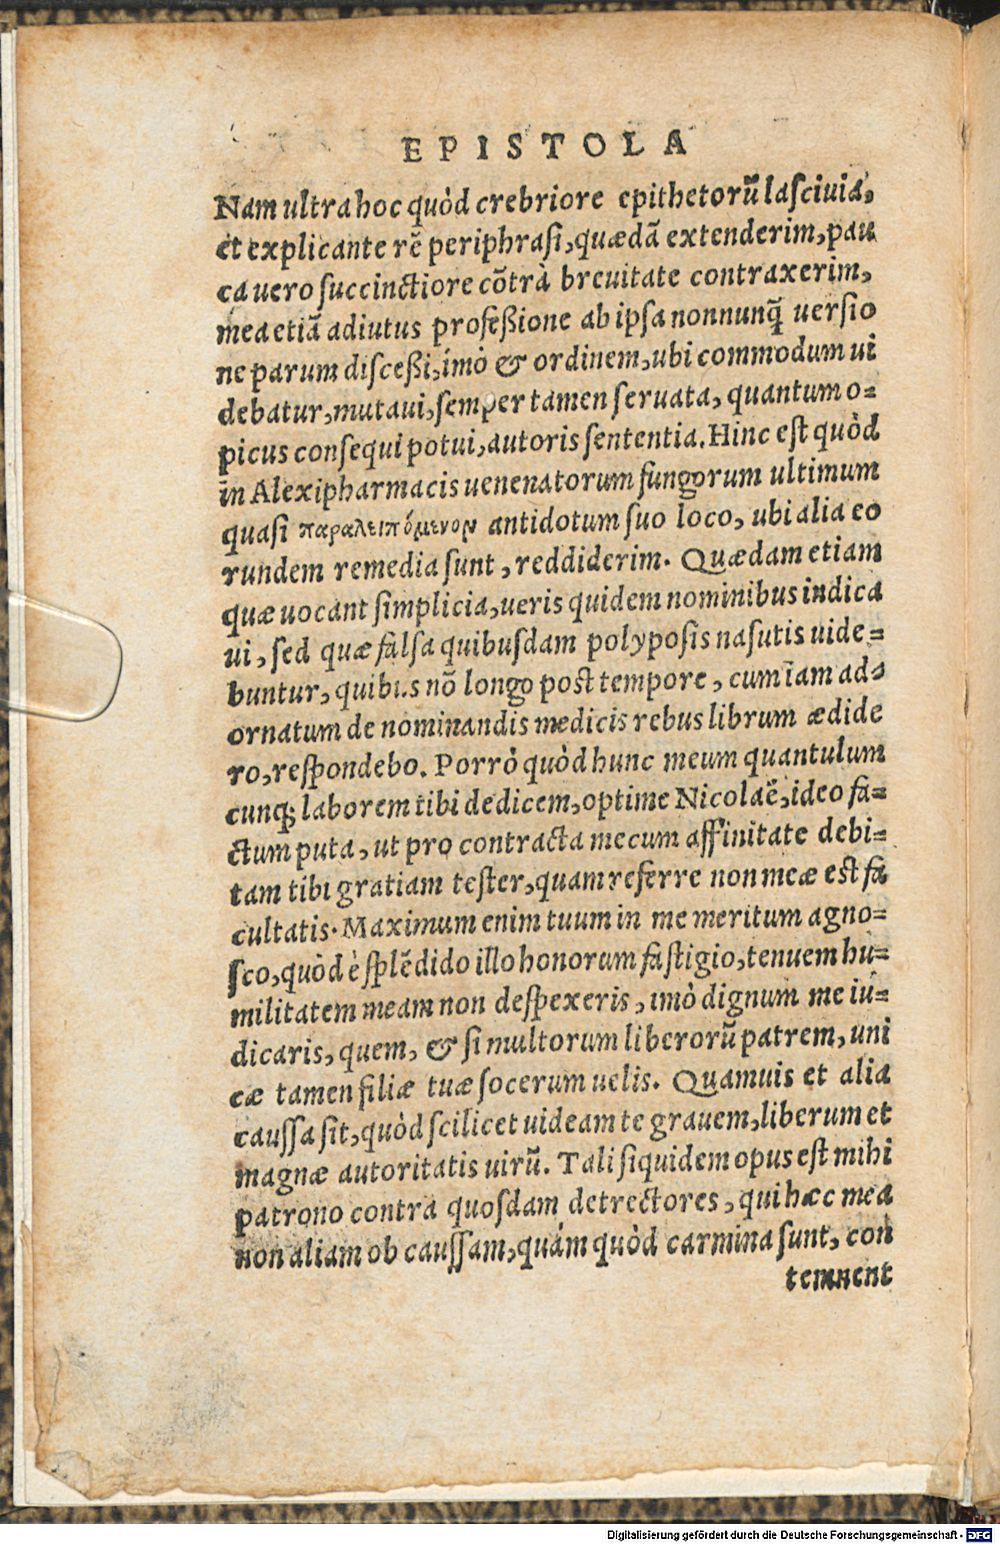 EPISTOLA
Nam ultra hoc quòd crebriore epithetorũ lasciuia,
et explicante rẽ periphrasi, quædã extenderim, pau
ca uero succinctiore cõtrà breuitate contraxerim,
mea etiã adiutus professione ab ipsa nonnunq̃ uersio
ne parum discessi, imò & ordinem, ubi commodum ui
debatur, mutaui, semper tamen seruata, quantum o=
picus consequi potui, autoris sententia. Hinc est quòd
in Alexipharmacis uenenatorum fungorum ultimum
quasi παραλειπόμενον antidotum suo loco, ubi alia eo
rundem remedia sunt, reddiderim. Quædam etiam
quæ uocant simplicia, ueris quidem nominibus indica
ui, sed quæ falsa quibusdam polyposis nasutis uide=
buntur, quibus nõ longo post tempore, cum iam ad=
ornatum de nominandis medicis rebus librum ædide
ro, respondebo. Porrò quòd hunc meum quantulum
cunq; laborem tibi dedicem, optime Nicolaë, ideo fa=
ctum puta, ut pro contracta mecum affinitate debi=
tam tibi gratiam tester, quam referre non meæ est fa
cultatis. Maximum enim tuum in me meritum agno=
sco, quòd è splẽdido illo honorum fastigio, tenuem hu=
militatem meam non despexeris, imò dignum me iu=
dicaris, quem, & si multorum liberorũ patrem, uni
cæ tamen filiæ tuæ socerum uelis. Quamuis et alia
caussa sit, quòd scilicet uideam te grauem, liberum et
magnæ autoritatis uirũ. Tali siquidem opus est mihi
patrono contra quosdam detrectores, qui hæc mea
non aliam ob caussam, quàm quòd carmina sunt, con
temnent
Digitalisierung gefördert durch die Deutsche Forschungsgemeinschaft - DFG